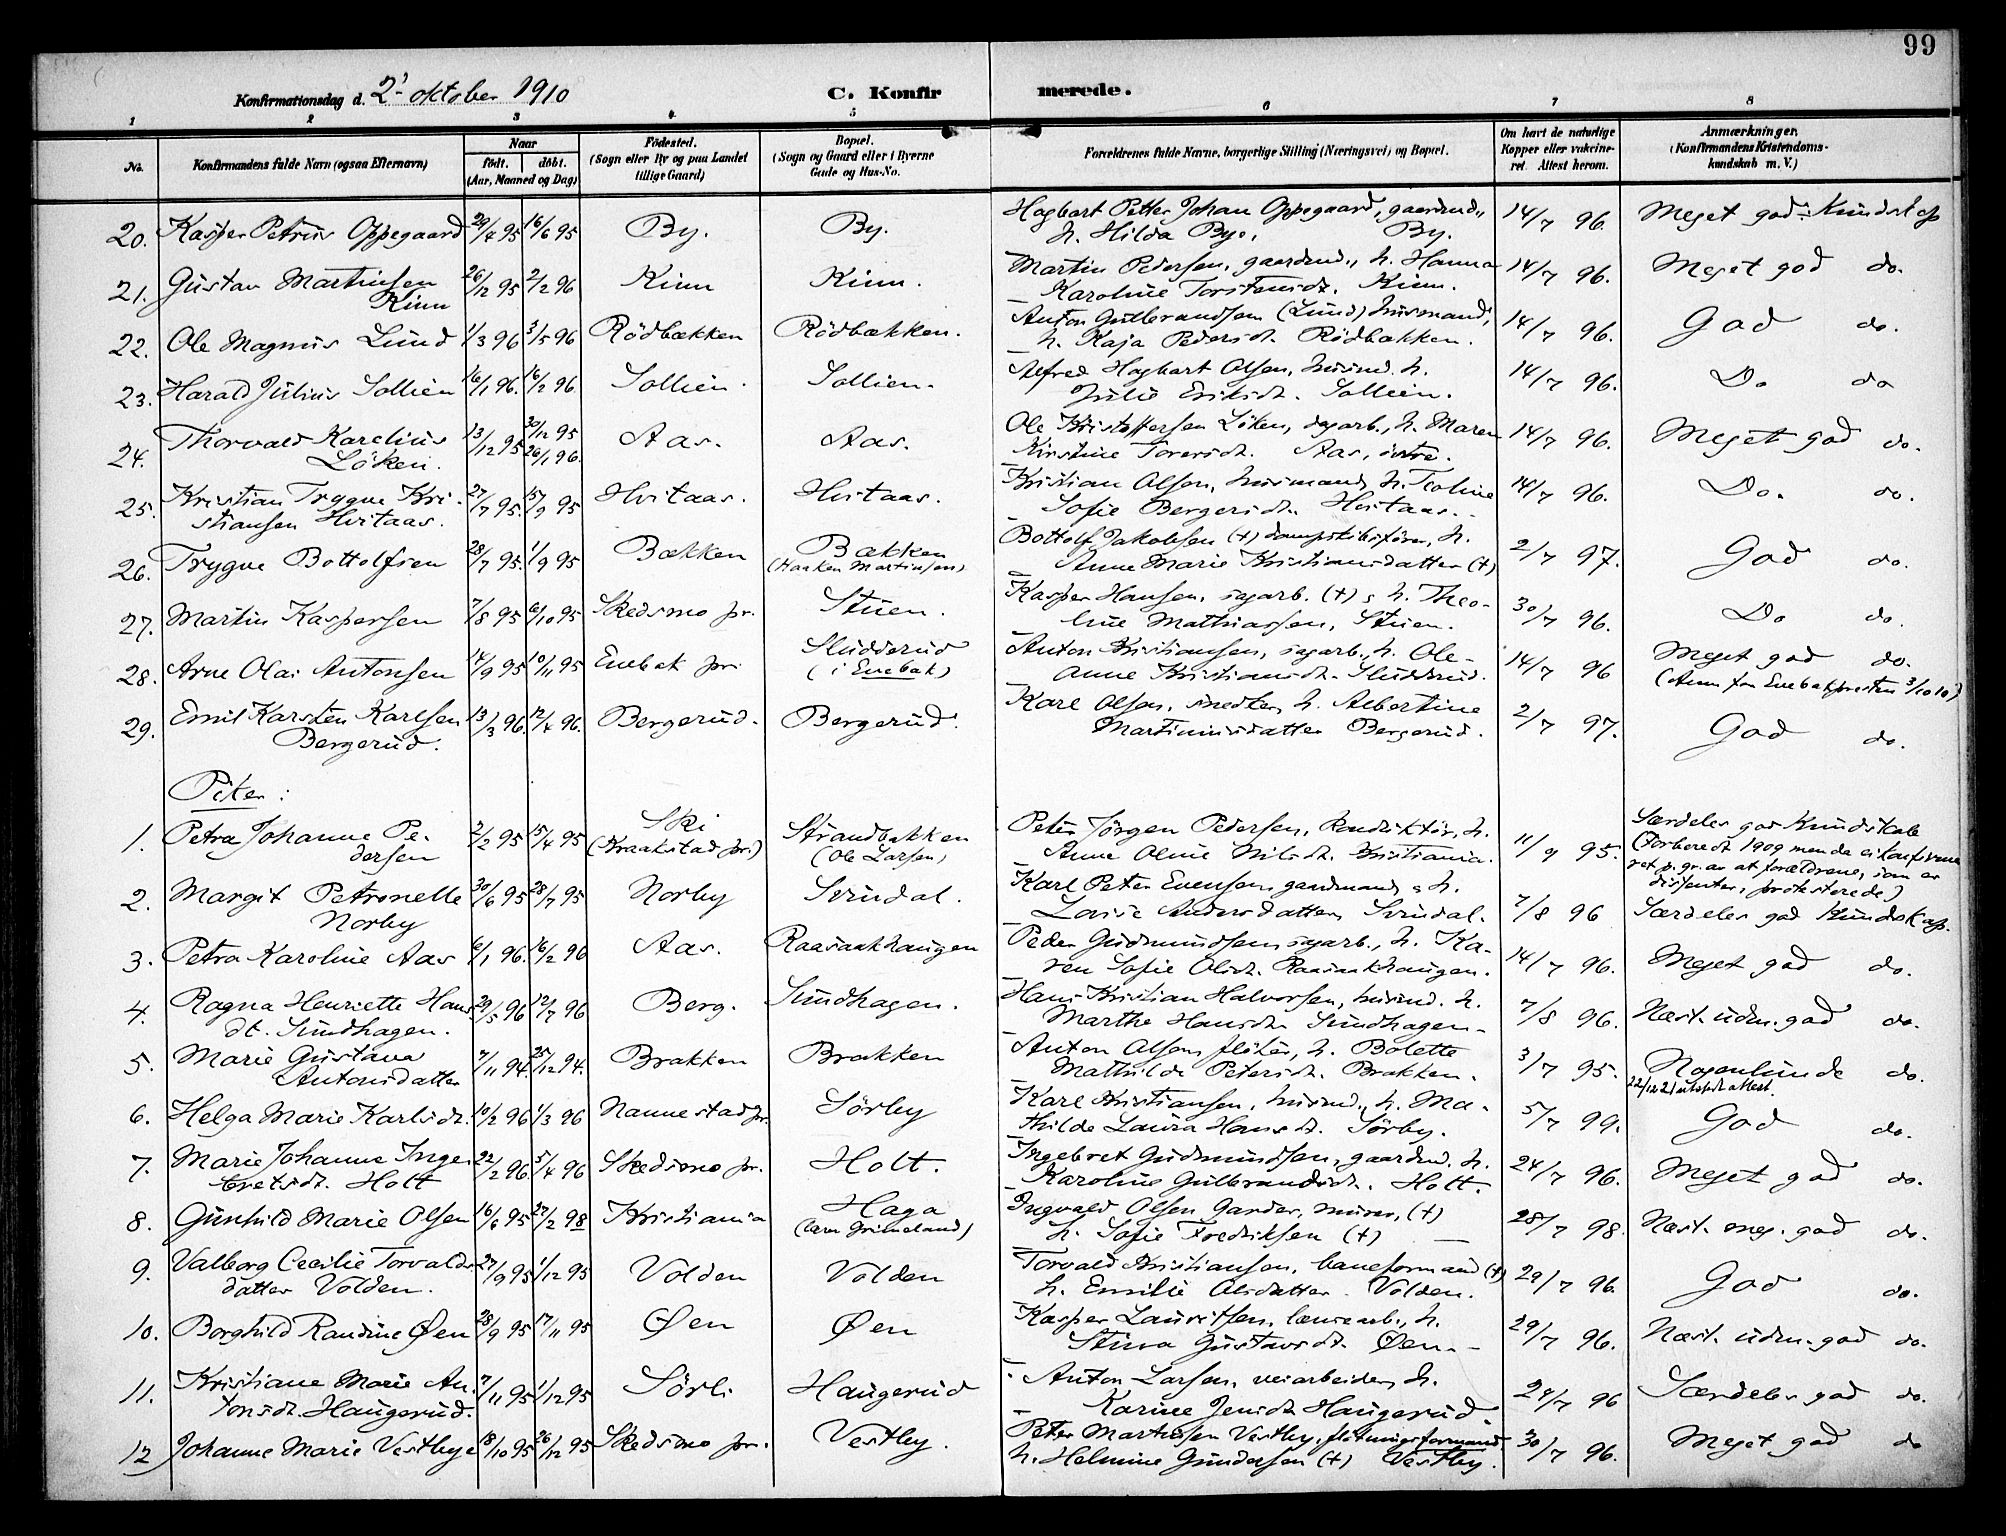 99
Konfirmationsdag d. 2' oktober 1910
C. Konfirmerede.
1 2 3 4 5 6 7 8
No.
Konfirmandens fulde Navn (ogsaa Efternavn)
Naar
født. døbt.
(Aar, Maaned og Dag)
Fødested.
(Sogn eller By og paa Landet
tillige Gaard)
Bopæl.
(Sogn og Gaard eller i Byerne
Gade og Hus-No.
Forældrenes fulde Navne, borgerlige Stilling (Næringsvei) og Bopæl.
Om havt de naturlige
Kopper eller vakcine-
ret Attest herom.
Anmærkninger.
(Konfirmandens Kristendoms-
kundskab m. V.)
20. Kasper Petrus Oppegaard 29/4 95 16/6 95 By. By. Hagbart Petter Johan Oppegaard, gaardmd.,
h. Hilda Bye, By. 14/7 96. Meget god Kundskap
21. Gustav Martinsen
Kinn 26/12 95 2/2 96 Kinn Kinn. Martin Pedersen, gaardmd., h. Hanna
Karoline Torstensdt. Kinn. 14/7 96. Meget god do.
22. Ole Magnus Lund 1/3 96 3/5 96 Rödbækken Rödbækken. Anton Gulbrandsen (Lund) husmand,
h. Kaja Pedersdt. Rödbækken. 14/7 96. God do.
23. Harald Julius Sollien 16/1 96. 16/2 96. Sollien. Sollien. Alfred Hagbart Olsen, husmd. h.
Julie Eriksdt. Sollien. 14/7 96. Do do
24. Thorvald Karelius
Löken. 13/12 95 30/12 95
26/1 96. Aas. Aas. Ole Kristoffersen Löken, dagarb., h. Maren
Kirstine Toversdt. Aas, östre. 14/7 96. Meget god do.
25. Kristian Trygve Kri-
stiansen Hvitaas. 27/7 95. 15/9 95 Hvitaas. Hvitaas. Kristian Olsen, husmand, h. Teoline
Sofie Bergersdt. Hvitaas. 14/7 96. Do. do.
26. Trygve Bottolfsen 28/7 95. 1/9 95 Bækken Bækken
(Haaken Martinsen) Bottolf Jakobsen (+) dampskibsfører, h.
Anne Marie Kristiansdatter (+) 2/7 97. God do.
27. Martin Kaspersen 7/8 95 6/10 95 Skedsmo pr. Stuen. Kasper Hansen, sagarb. (+) & h. Theo-
line Mathiassen, Stuen. 30/7 96. Do do.
28. Arne Olai Antonsen 14/9 95 10/11 95 Enebak pr. Sludderud
(i Enebak) Anton Kristiansen, sagarb., h. Ole-
anne Kristiansdt. Sludderud. 14/7 96 Meget god do.
(Anm. for Enebakpresten 3/10 10)
29. Emil Karsten Karlsen
Bergerud. 13/3 96. 12/4 96. Bergerud. Bergerud. Karl Olsen, snedker, h. Albertine
Martiniusdatter Bergerud. 2/7 97. God do.
Piker:
1. Petra Johanne Pe-
dersen 2/2 95 15/4 95 Ski
(Kraakstad pr.) Strandbakken
(Ole Larsen) Peter Jörgen Pedersen, Konduktör, h.
Anne Oline Nilsdt. Kristiania. 11/9 95. Særdeles god Kundskab
(Forberedt 1909 men da ei konfirme
ret p. gr. av at forældrene, som er
dissenter, protesterede)
2. Margit Petronelle
Norby 30/6 95 28/7 95 Norby Svindal. Karl Peter Evensen, gaardmand & h.
Lovise Andersdatter, Svindal. 7/8 96 Særdeles god Kundskap.
3. Petra Karoline Aas 6/1 96. 16/2 96 Aas. Raasaakhaugen Peder Gudmundsen, sagarb., h. Ka-
ren Sofie Olsdt. Raasaakhaugen. 14/7 96. Meget god do.
4. Ragna Henriette Hans
dt. Sundhagen. 29/5 96 12/7 96 Berg. Sundhagen. Hans Kristian Halvorsen, husmd. h.
Marthe Hansdt. Sundhagen. 7/8 96. Næst. udm. god do.
5. Marie Gustava
Antonsdatter 7/11 94. 25/12 94. Brakken Brakken Anton Olsen, flöter, h. Bolette
Mathilde Petersdt. Brakken. 3/7 95. Nogenlunde do.
22/12 21 utstedt attest.
6. Helga Marie Karlsdt. 10/2 96 1/3 96 Nannestad pr. Sörby Karl Kristiansen, husmd., h. Ma-
thilde Laura Hansdt. Sörby. 5/7 99. God do.
7. Marie Johanne Inge-
bretsdt. Holt 22/2 96. 5/4 96 Skedsmo pr. Holt. Ingebret Gudmundsen, gaardmd. h.
Karoline Gulbrandsdt. Holt. 24/7 96. Meget god do.
8. Gunhild Marie Olsen 16/6 95 27/2 98 Kristiania Haga
(Grimeland) Ingvald Olsen Garder, murer, (+)
h. Sofie Fredriksen (+) — 28/7 98. Næst. meg. god do.
9. Valborg Cecilie Torvalds-
datter Volden. 27/9 95 1/12 95 Volden Volden Torvald Kristiansen, baneformand (+)
h. Emilie Olsdatter Volden. 29/7 96. God do.
10. Borghild Randine Øen 28/9 95 17/11 95 Øen Øen Kasper Lauritsen, h.
Stina Gustavsdt. Øen. 29/7 96. Næst. udm. god do.
11. Kristiane Marie An-
tonsdt. Haugerud. 7/11 95 1/12 95 Sörli Haugerud Anton Larsen, veiarbeider, h.
Karine Jensdt. Haugerud. 29/7 96 Særdeles god do.
12 Johanne Marie Vestbye 18/10 95 26/12 95 Skedsmo pr. Vestby. Peter Martinsen Vestby, flötningsformand,
h. Helmine Gundersen (+) Vestby. 30/7 96. Meget god do